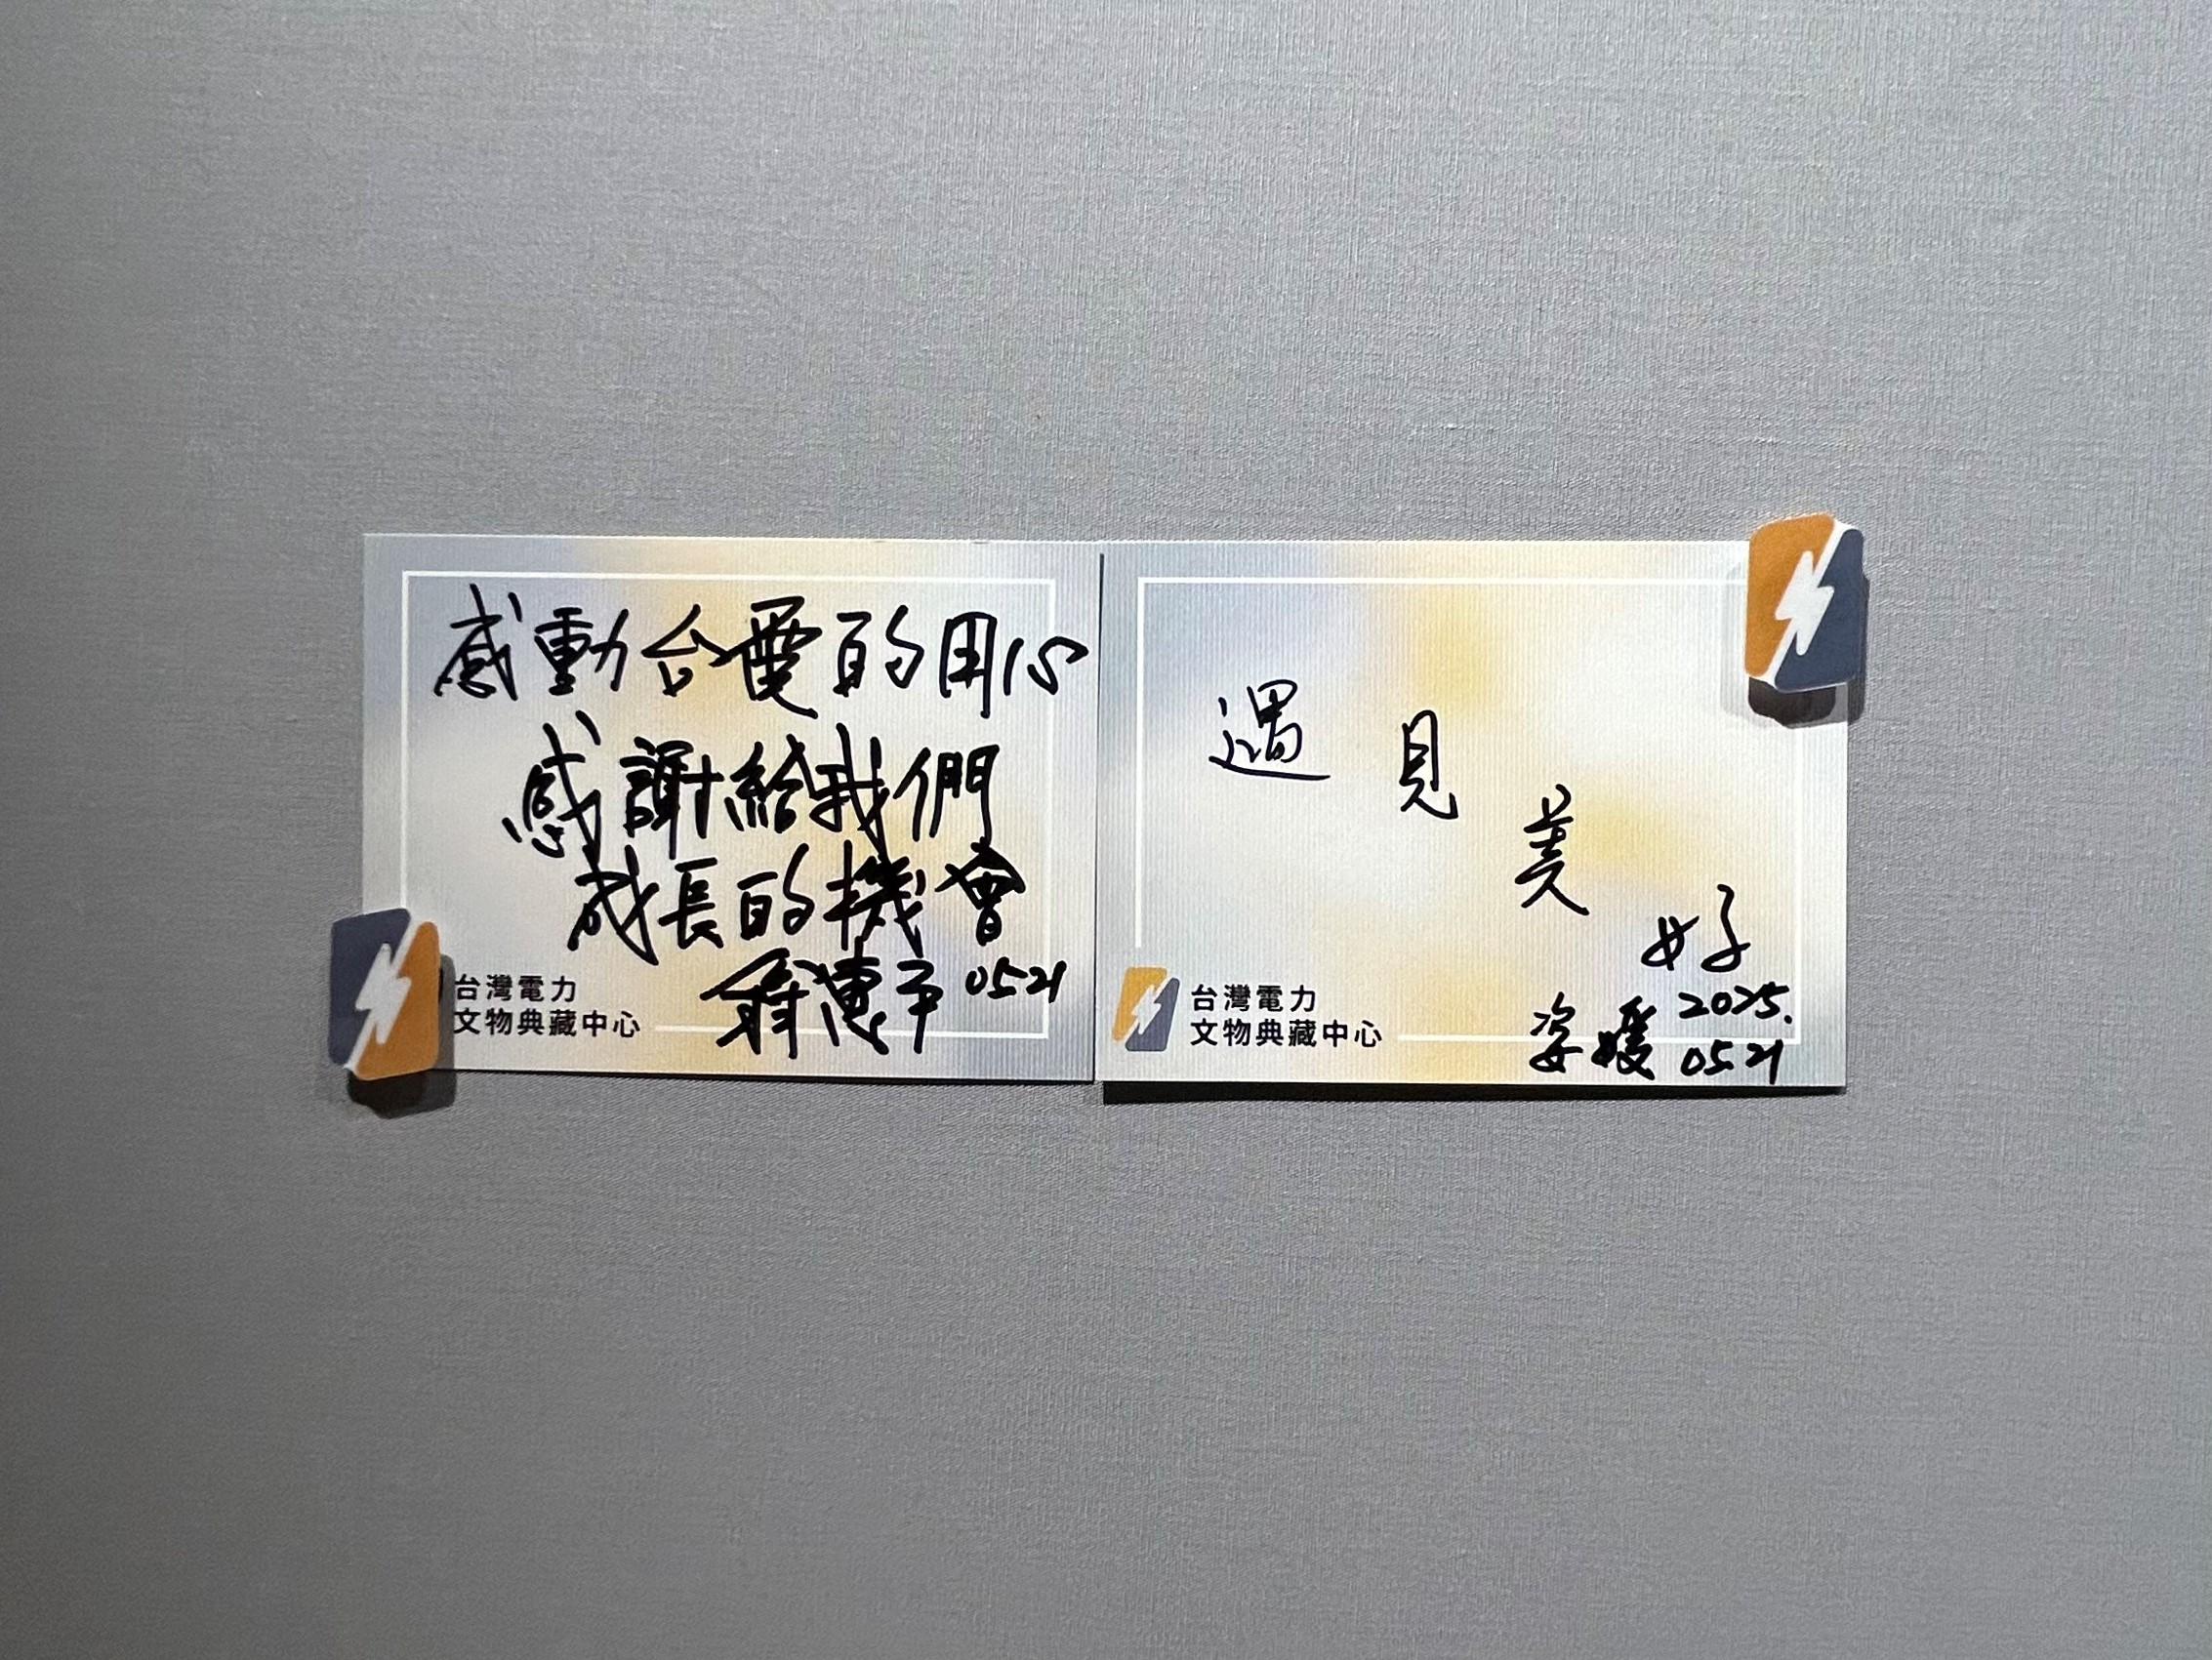 感動台電的用心
感謝給我們
成長的機會
翁惠平 0521
台灣電力
文物典藏中心
遇見美好
2025.
姿媛 05.21
台灣電力
文物典藏中心